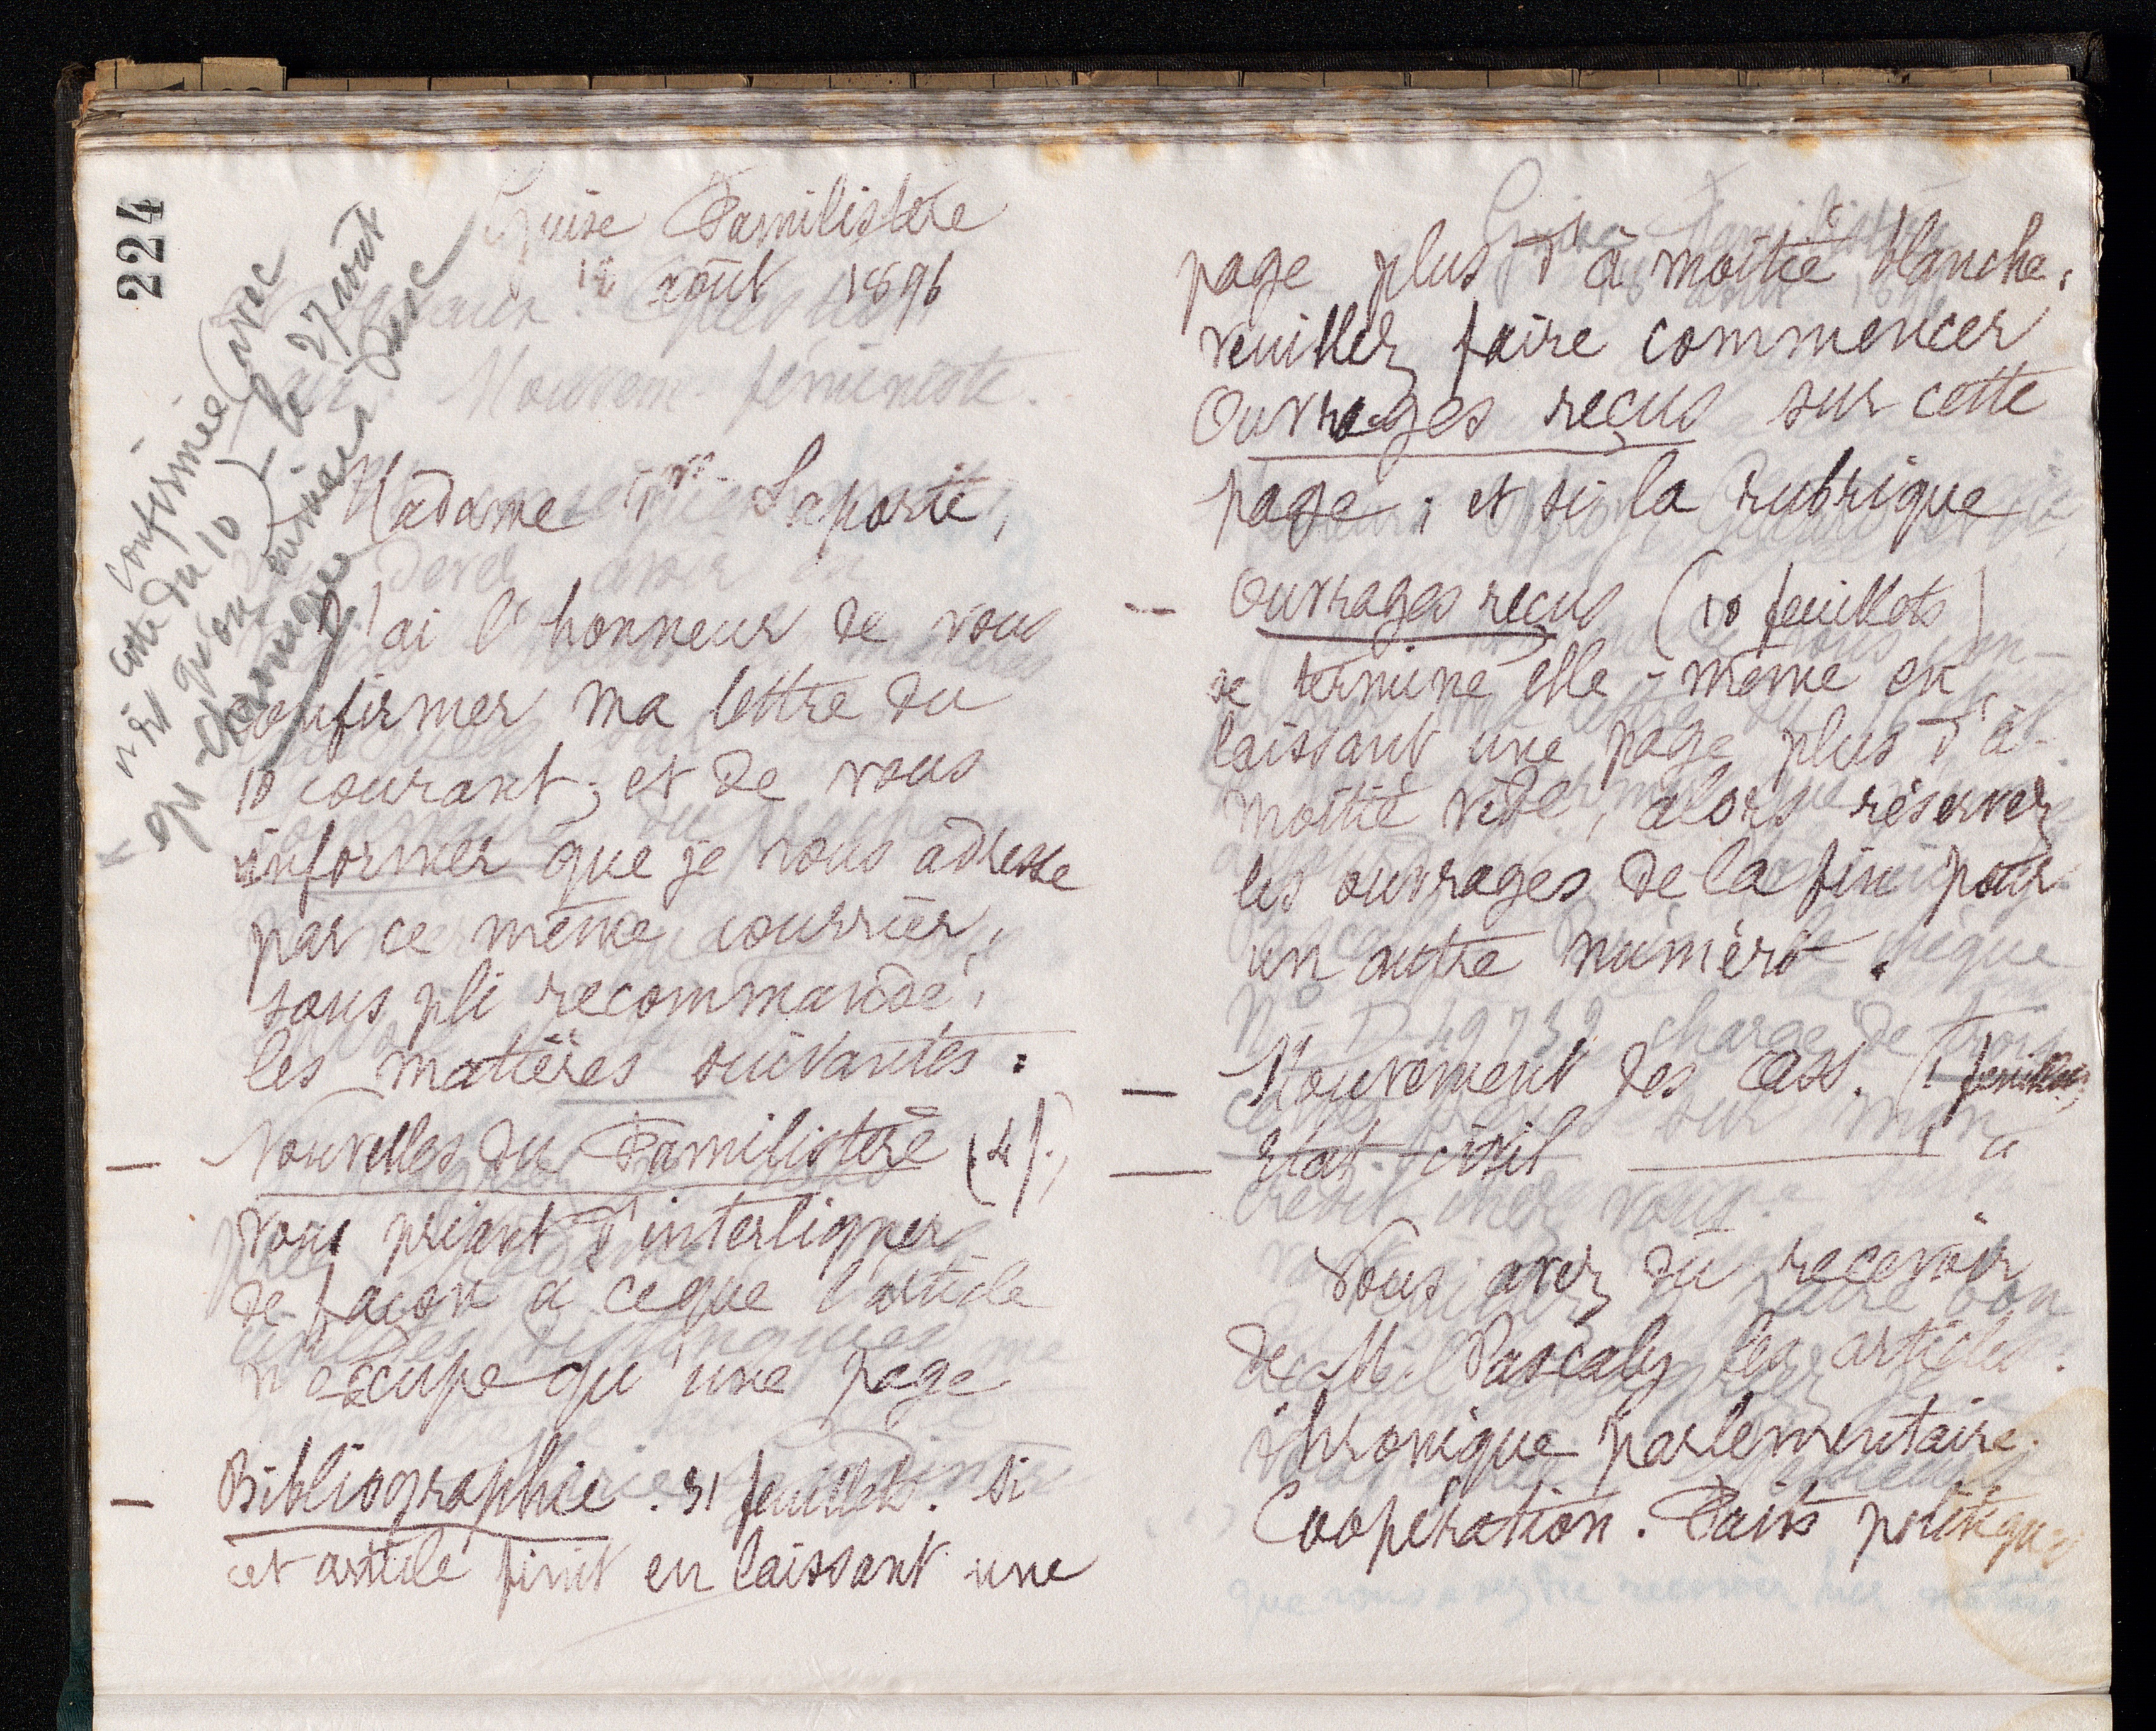 224
Guise Familistère
12 août 1896
Madame Vve Laporte,
J'ai l'honneur de vous
confirmer ma lettre du
10 courant; et de vous
informer que je vous adresse
par ce même courrier,
sous pli recommandé,
les matières suivantes :
— Nouvelles du Familistère (4).,
vous priant d'interligner
de façon à ce que l'article
n'occupe qu'une page
— Bibliographie. 31 feuillets. Si
cet article finit en laissant une
page plus d'à moitié blanche,
veuillez faire commencer
Ouvrages reçus sur cette
page ; et si la rubrique
— Ouvrages reçus (10 feuillets)
se termine elle-même en
laissant une page plus d'à
moitié vide, alors réservez
les ouvrages de la fin pour
un autre numéro.
— Mouvement des ass. (1 feuillet)
— Etat-civil — 1 "
Vous avez dû recevoir
de M. Pascaly les articles :
Chronique parlementaire.
Coopération. Faits politiques
confirmée avec
cette du 10 le 27 août
qu'on